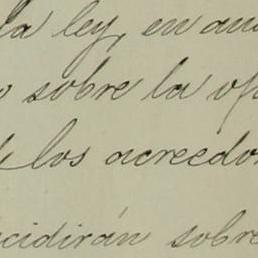 la ley, en au
o sobre la op
de los acreedor
cidirán sobre